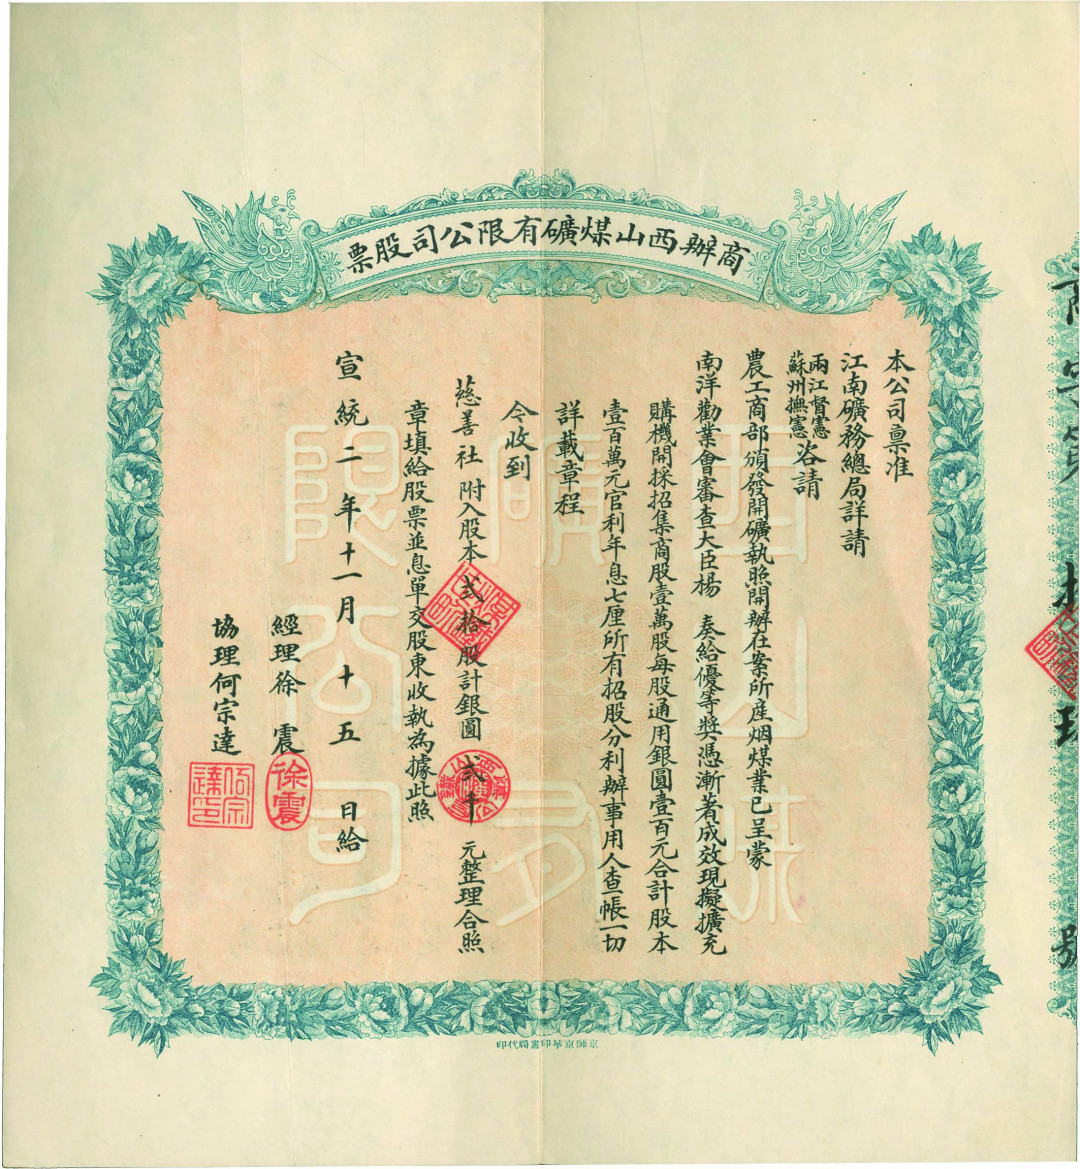 商辦西山煤礦有限公司股票
本公司稟准
江南礦務總局詳請
兩江督憲
蘇州撫憲咨請
農工商部頒發開礦執照開辦在案所産烟煤業已呈蒙
南洋勸業會審查大臣楊 奏給優等獎憑漸著成效現擬擴充
購機開採招集商股壹萬股每股通用銀圓壹百元合計股本
壹百萬元官利年息七厘所有招股分利辦事用人查帳一切
詳載章程
今收到
慈善社 附入股本貳拾股計銀圓貳千元整理合照
章填給股票並息單交股東收執為據此照
宣統二年十一月十五日給
經理徐震
徐震
協理何宗達
何宗達印
西山煤礦有限公司
京師京華印書局代印
號